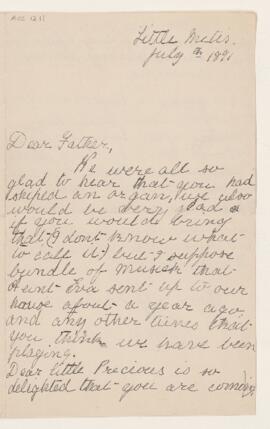 Little Metis.
July th 1891
Dear Father,
We were all so
glad to hear that you had
shiped an organ, we also
would be very glad
if you would bring
that (I don't know what
to call it) but I suppose
bundle of musick that
Aunt Eva sent up to our
house about a year ago
and any other tunes that
you think we have been
playing.
Dear little Precious is so
delighted that you are coming